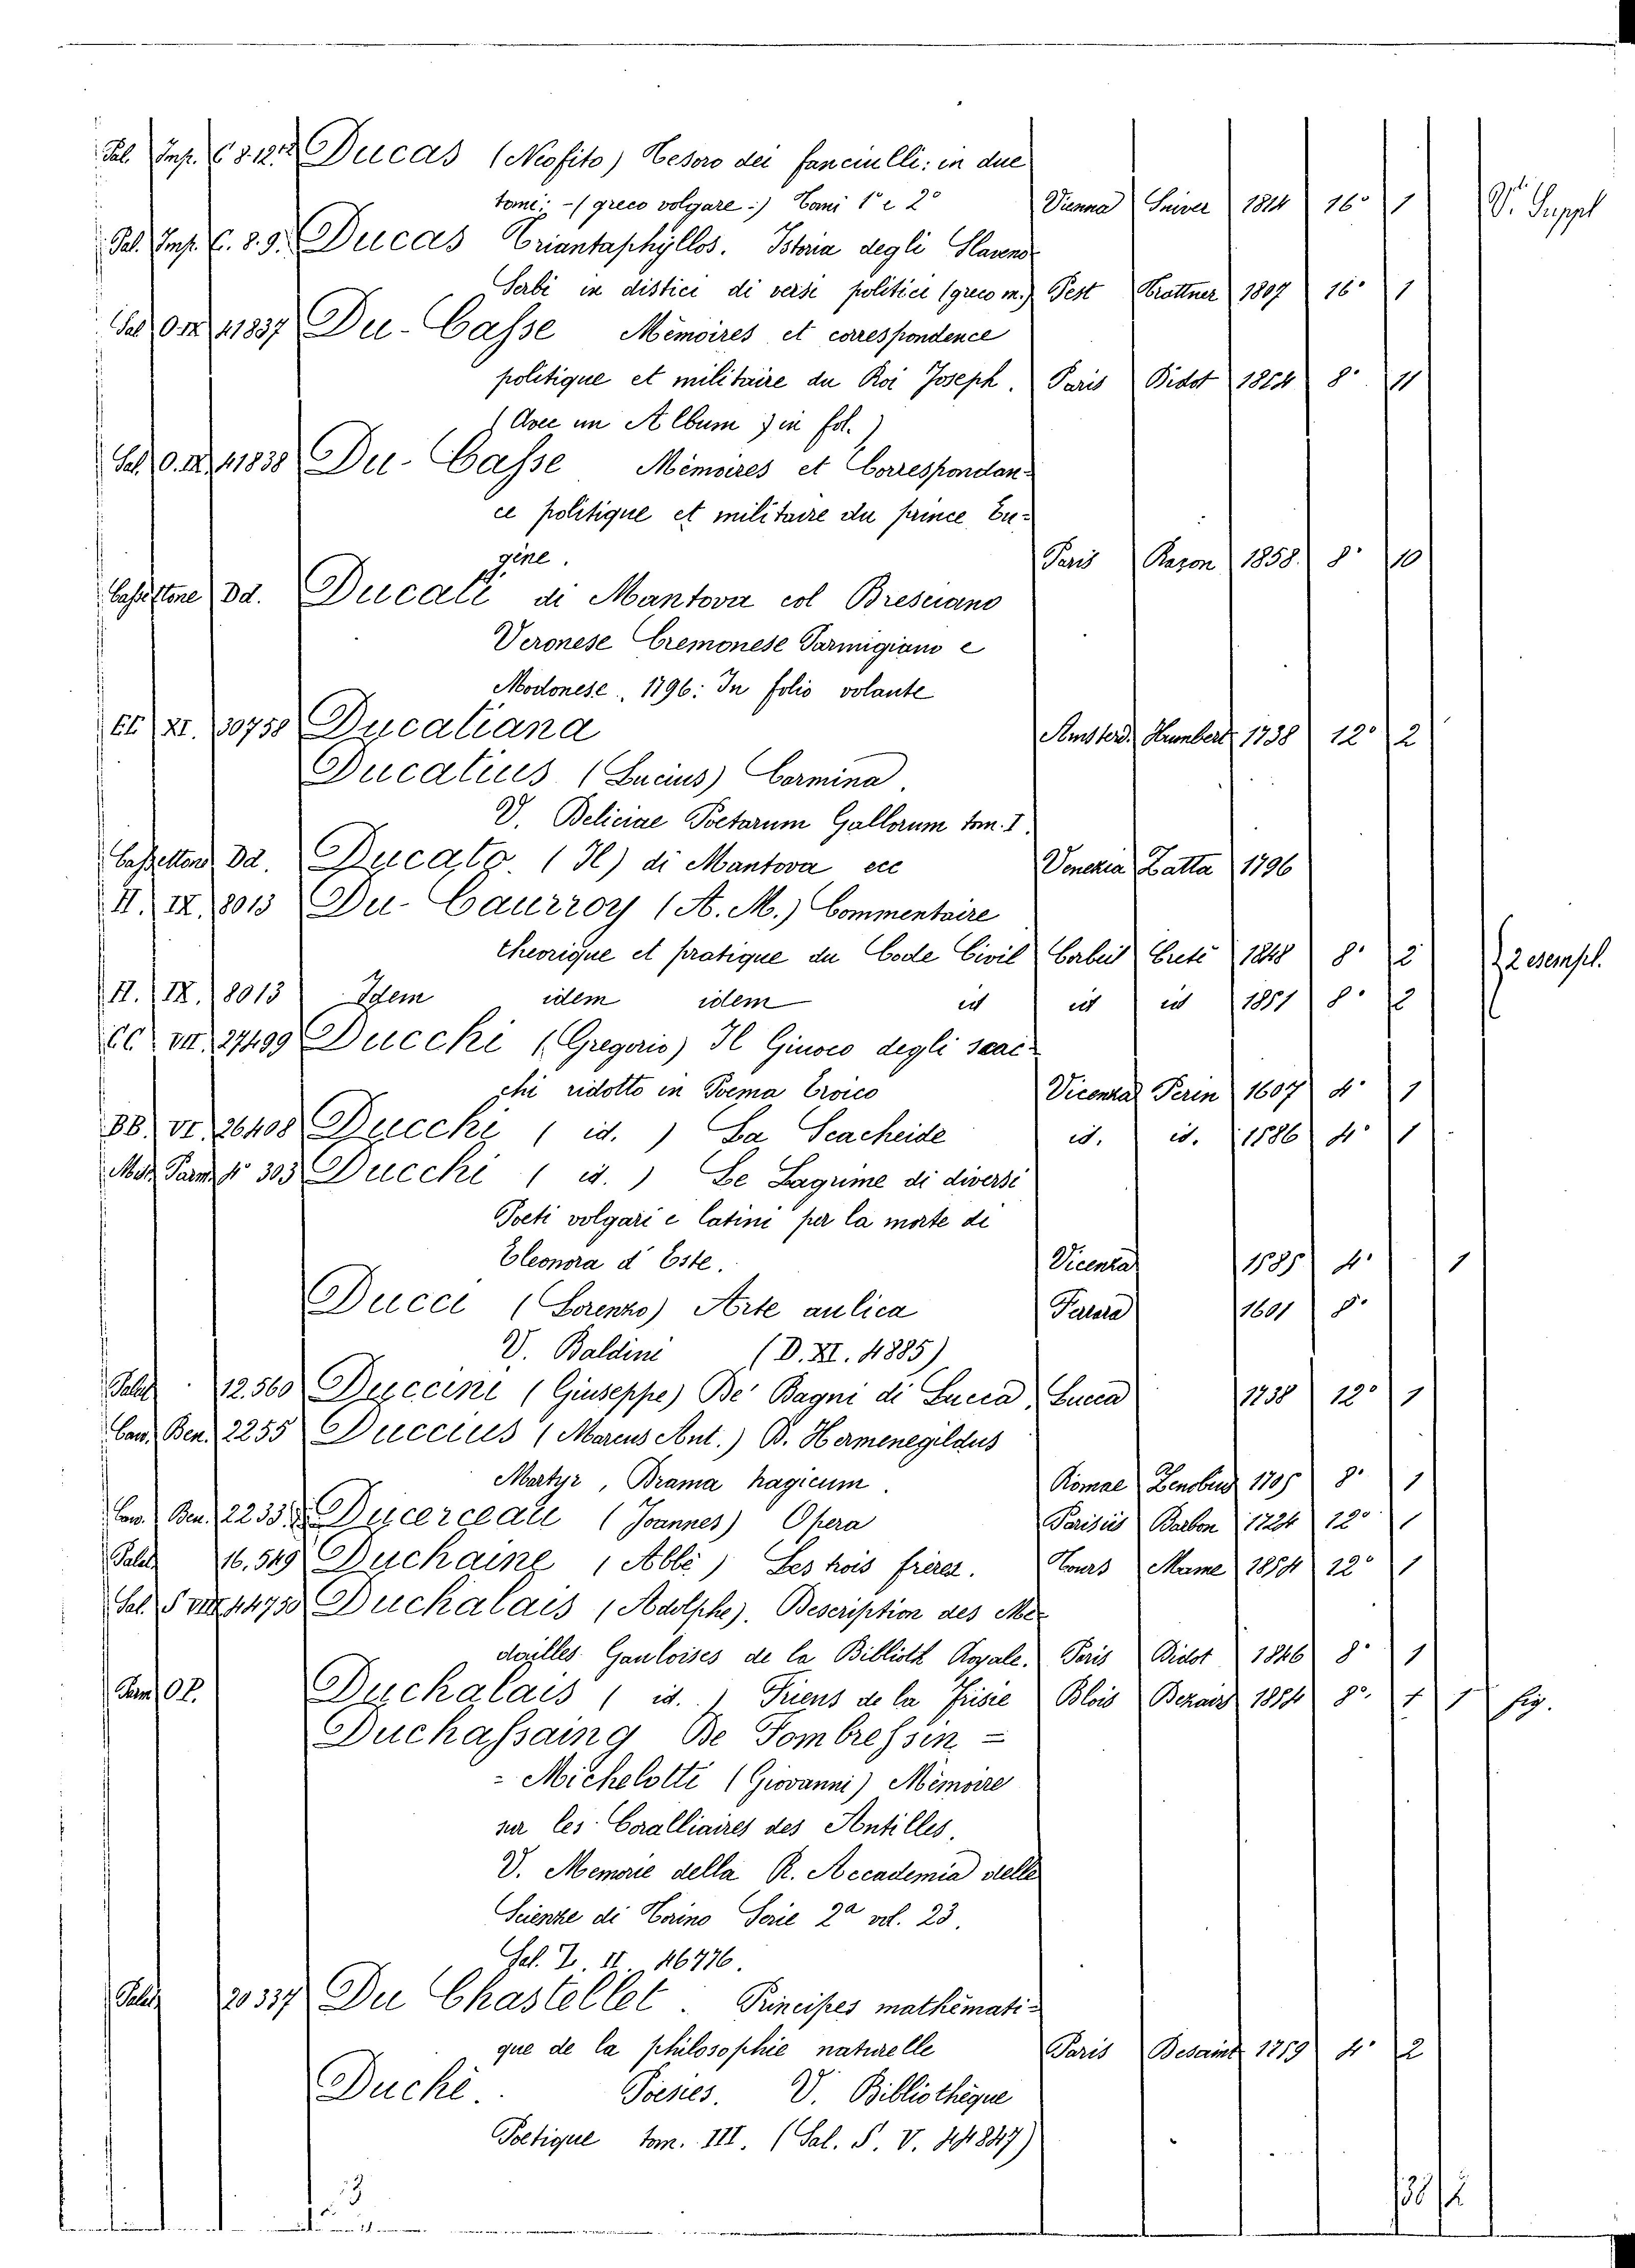 Pal. Imp. C 8. 12. Ducas (Neofito) Tesoro dei fanciulli: in due
tomi: - (greco volgare:) Tomi 1° e 2° Vienna 1814 16° 1 V. Suppl
Pal. Imp. C. 8. 9. Ducas Triantaphÿllos. Istoria degli Slaveno
Serbi in distici di versi politici (greco m.) Pest Trattner 1807 16° 1
Sal O. IX 41837 Du-Casse Mémoires et correspondence
politique et militaire du Roi Joseph. Paris Didot 1854 8° 11
(Avec un Album) in fol.)
Sal. O. IX 41838 Du-Casse Mémoires et Correspondan-
ce politique et militaire du prince Eu-
gène. Paris 1858. 8° 10
Cassettone Dd. Ducati di Mantova col Bresciano
Veronese Cremonese Parmigiano e
Modonese. 1796: In folio volante
EE XI. 30758 Ducatiana Amsterd. Humbert 1738 12° 2
Ducatius (Lucius) Carmina.
V. Deliciae Poetarum Gallorum tom. I.
Cassettone Dd. Ducato (Il) di Mantova ecc Venezia Zatta 1796
II. IX. 8013 Du-Caurroy (A. M.) Commentaire
theorique et pratique du Code Civil Corbeil Creté 1848 8° 2 2 esempl.
II. IX. 8013 Idem idem idem id id id 1851 8° 2
CC VII. 27499 Ducchi (Gregorio) Il Giuoco degli scac-
chi ridotto in Poema Eroico Vicenza Perin 1607 4° 1
BB. VI. 26408 Ducchi (id.) La Scacheide id. id. 1586 4° 1
Misc. Parm. 4° 303 Ducchi (id.) Le Lagrime di diversi
Poeti volgari e latini per la morte di
Eleonora d'Este. Vicenza 1585 4° 1
Ducci (Lorenzo) Arte aulica Ferrara 1601 8°
V. Baldini (D. XI. 4885)
Palat 12.560 Duccini (Giuseppe) De' Bagni di Lucca Lucca 1738 12° 1
Cav. Ben. 2255 Duccius (Marcus Ant.) B. Hermenegildus
Martyr, Drama tragicum. Romae Zenobius 1705 8° 1
Cav. Ben. 2233. Ducerceau (Joannes) Opera Parisiis Barbon 1724 12° 1
Palat 16.549 Duchaine (Abbé) Les trois frères. Tours Mame 1854 12° 1
Sal. S VIII 44750 Duchalais (Adolphe). Description des Me-
dailles Gauloises de la Biblioth Royale. Paris Didot 1846 8° 1
Parm OP. Duchalais (id.) Tiens de la Frisie Blois 1854 8° 1 1 fig.
Duchassaing De Fombressin =
= Michelotti (Giovanni) Mémoire
sur les Coralliaires des Antilles.
V. Memorie della R. Accademia delle
Scienze di Torino Serie 2a vol. 23.
Sal. Z. II. 46776.
Palat 20337 Du Chastellet. Principes mathémati-
que de la philosophie naturelle Paris Desaint 1759 4° 2
Duché. Poesies. V. Bibliothèque
Poetique tom. III. (Sal. S. V. 44847)
3